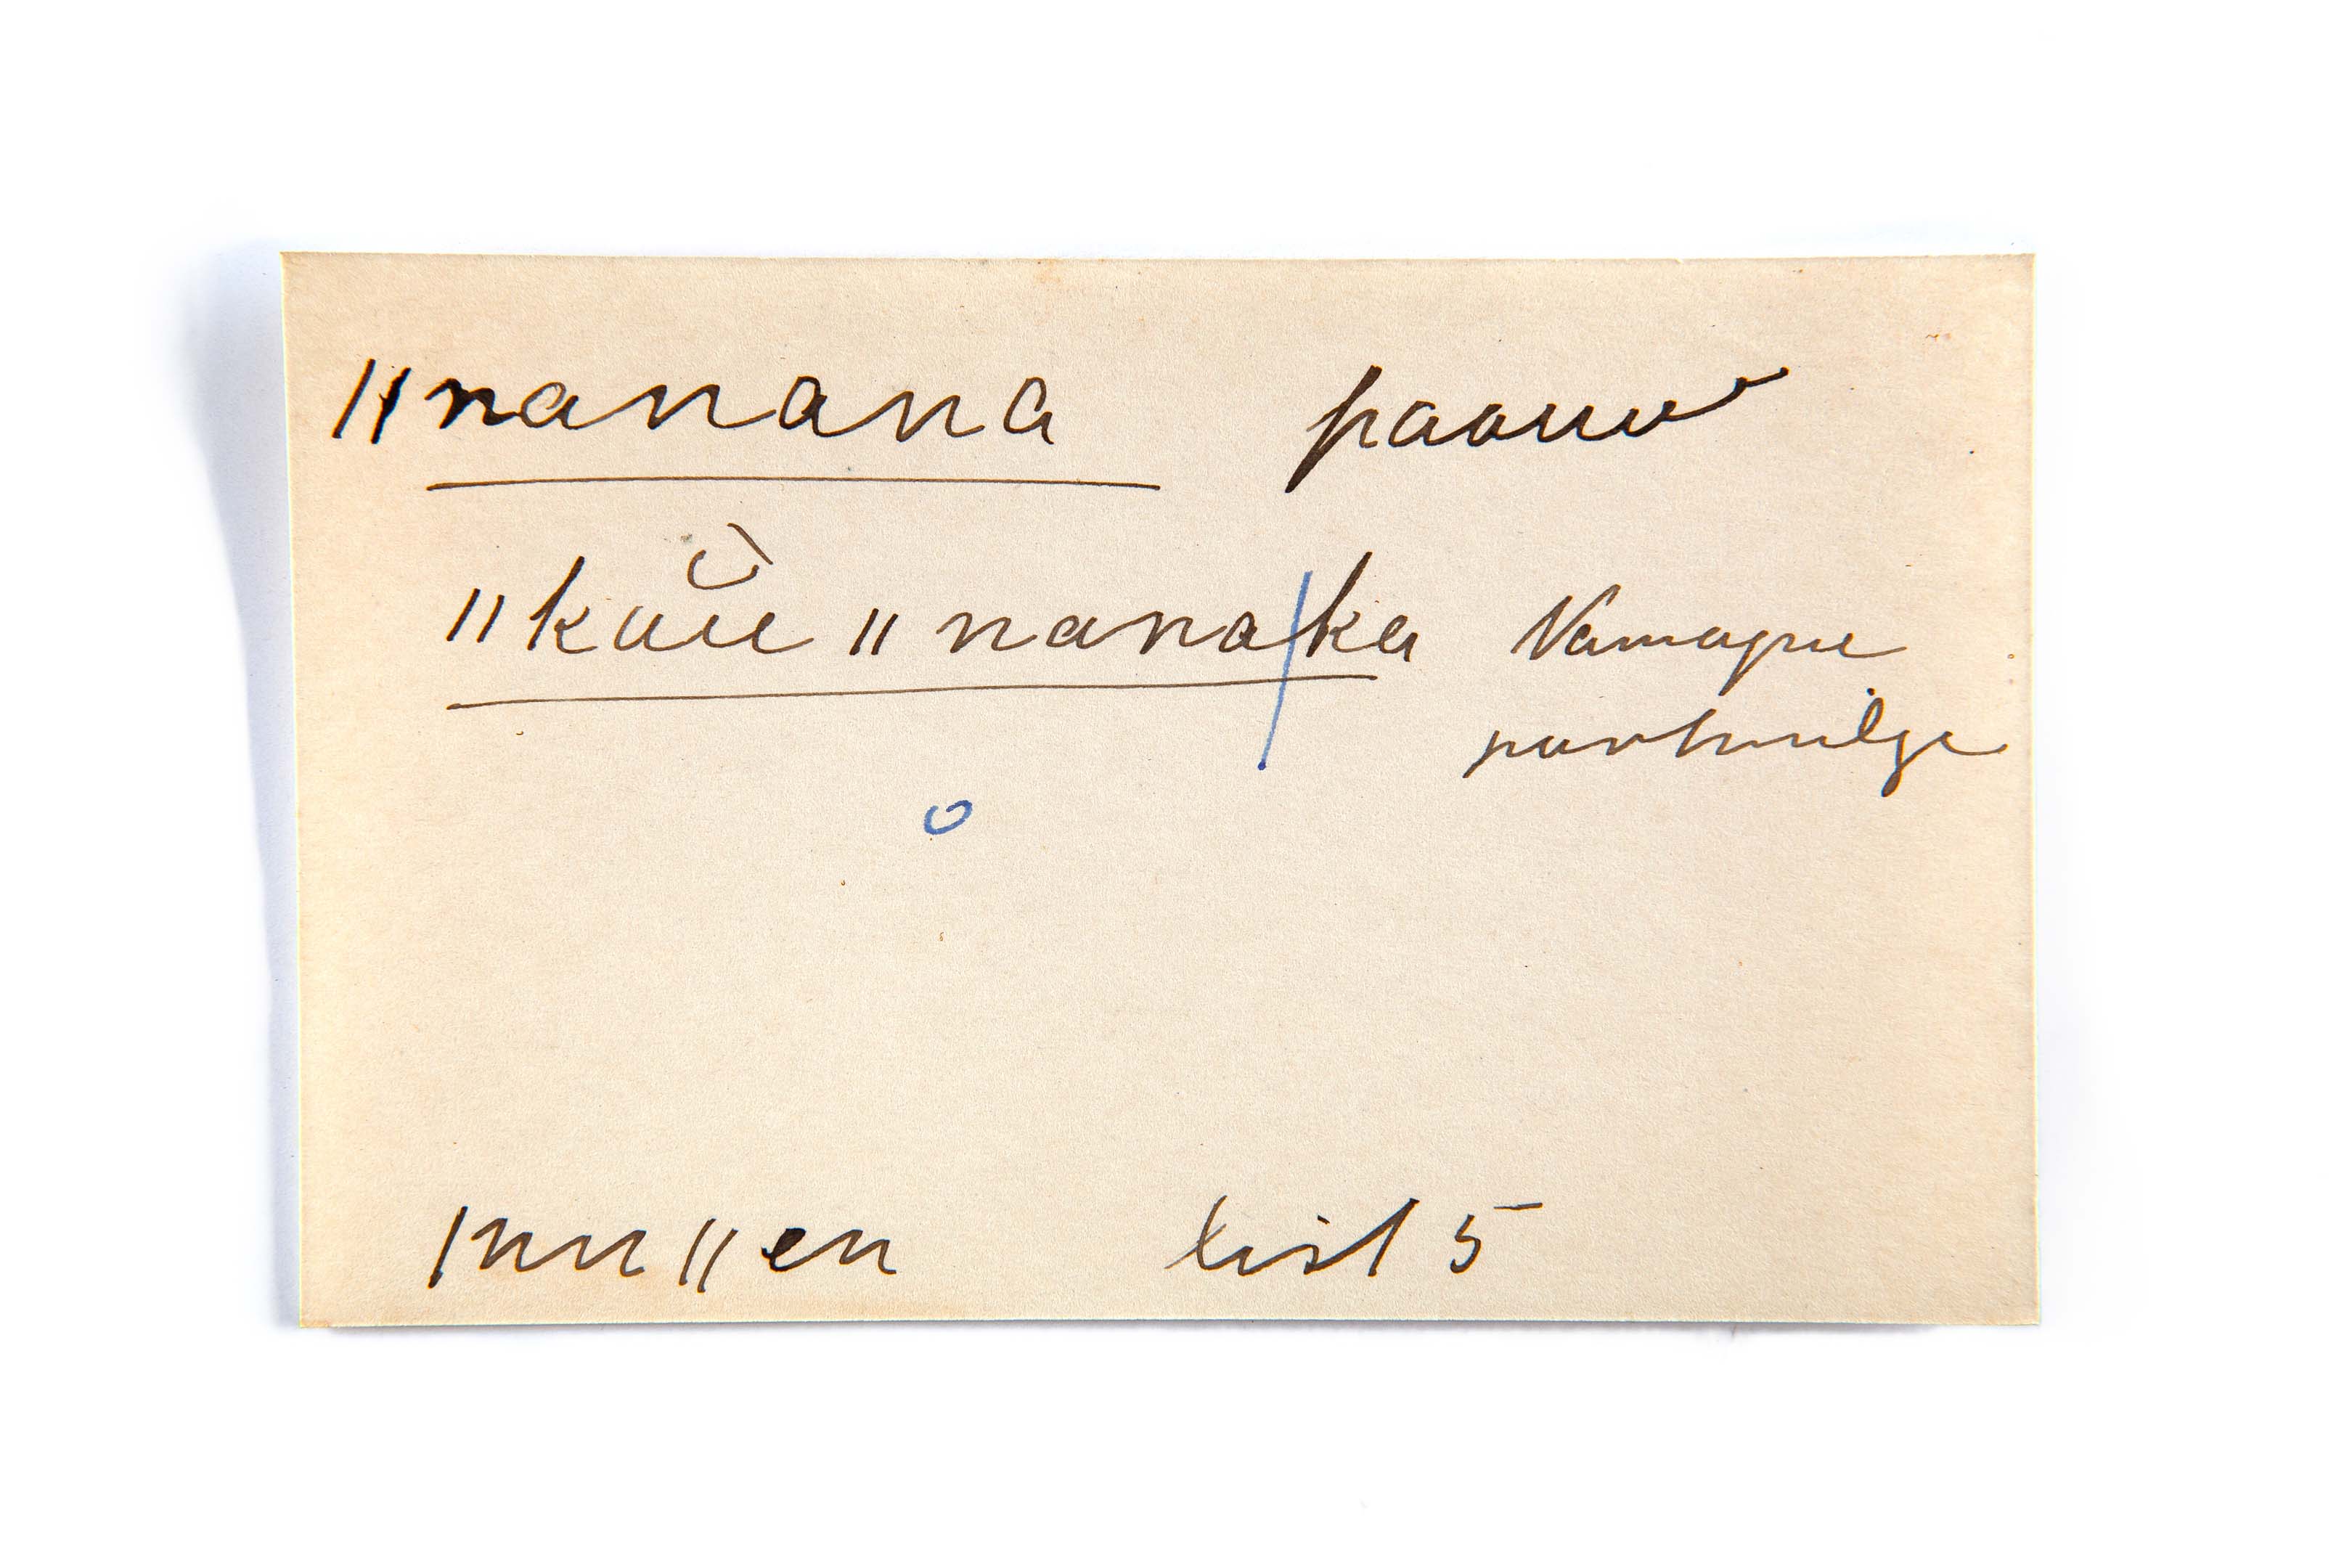 ǁnanana paauw
ǁkŭĭe ǁnana/ka Namaqua
partridge
ǀnuǁen List 5